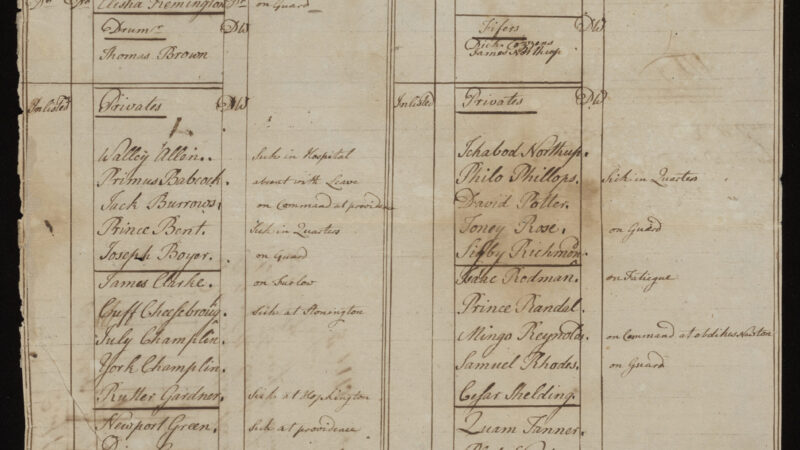 Elisha Remington
on Guard
Drumr
DW
Thomas Brown
Inlisted
Privates
DW
Walley Allen.
Sick in Hospital
Primus Babcock.
absent with Leave
Jack Burrows.
on Command at providence
Prince Bent.
Sick in Quarters
Joseph Boyer.
on Guard
James Clarke.
on Furlow
Cuff Cheesebroug
Sick at Stonington
July Champlin.
York Champlin.
Rutter Gardner.
Sick at Hopkington
Newport Green.
Sick at providence
Fifers
DW
Dick Cozzens
James Northup
Inlisted
Privates
DW
Ichabod Northup.
Philo Phillops.
Sick in Quarters
David Potter.
Toney Rose.
on Guard
Sigby Richmond
Isaac Rodman.
on Fatigue
Prince Randel.
Mingo Reynolds.
on Command at
Samuel Rhodes.
on Guard
Cesar Shelding.
Quam Tanner.